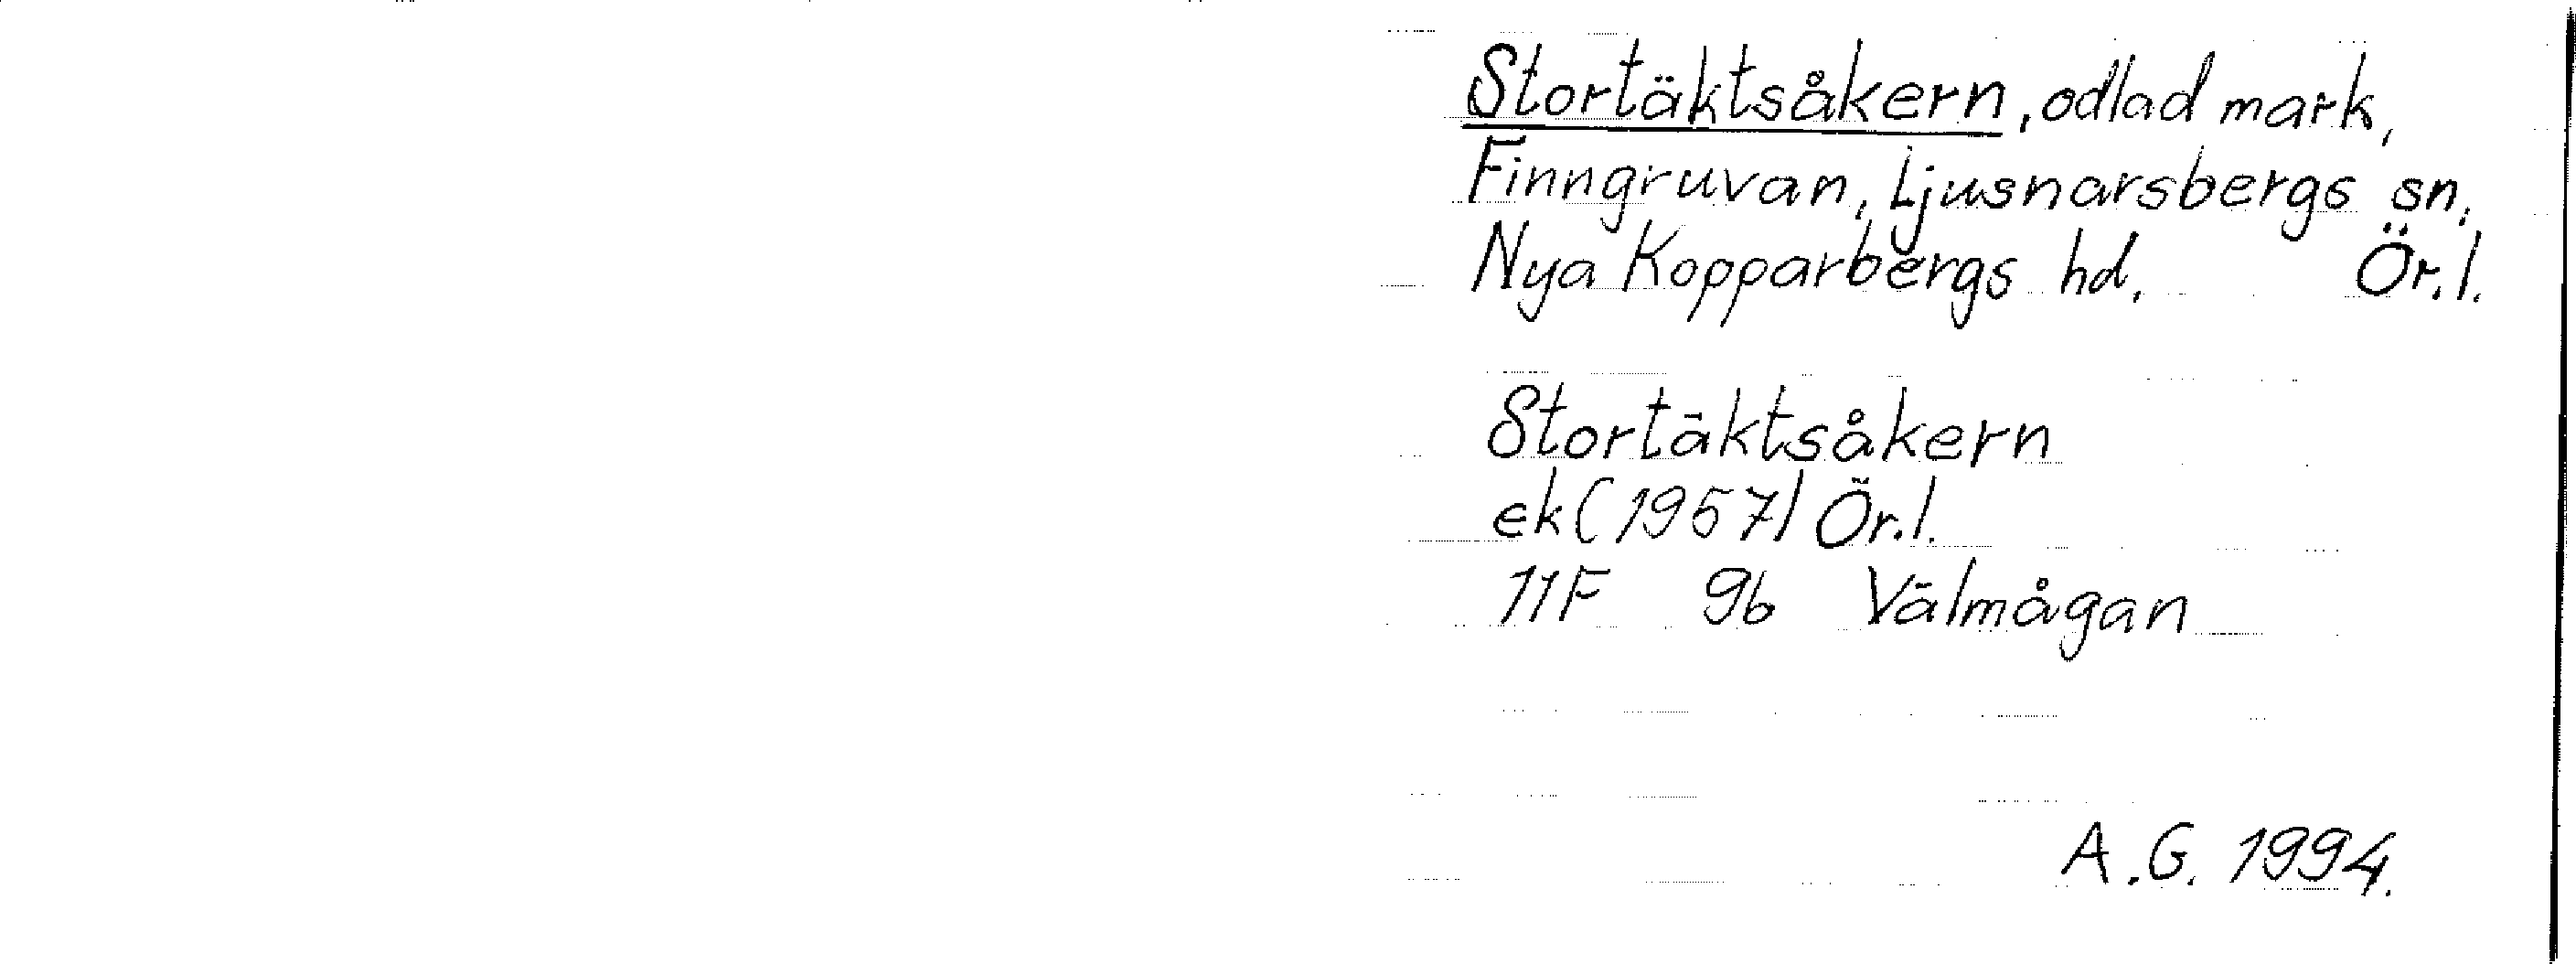 Stortäktsåkern, odlad mark,
Finngruvan, Ljusnarsbergs sn,
Nya Kopparbergs hd. Ör.l.
Stortäktsåkern
ek (1957) Ör.l.
11F 9b Välmågan
A.G. 1994.